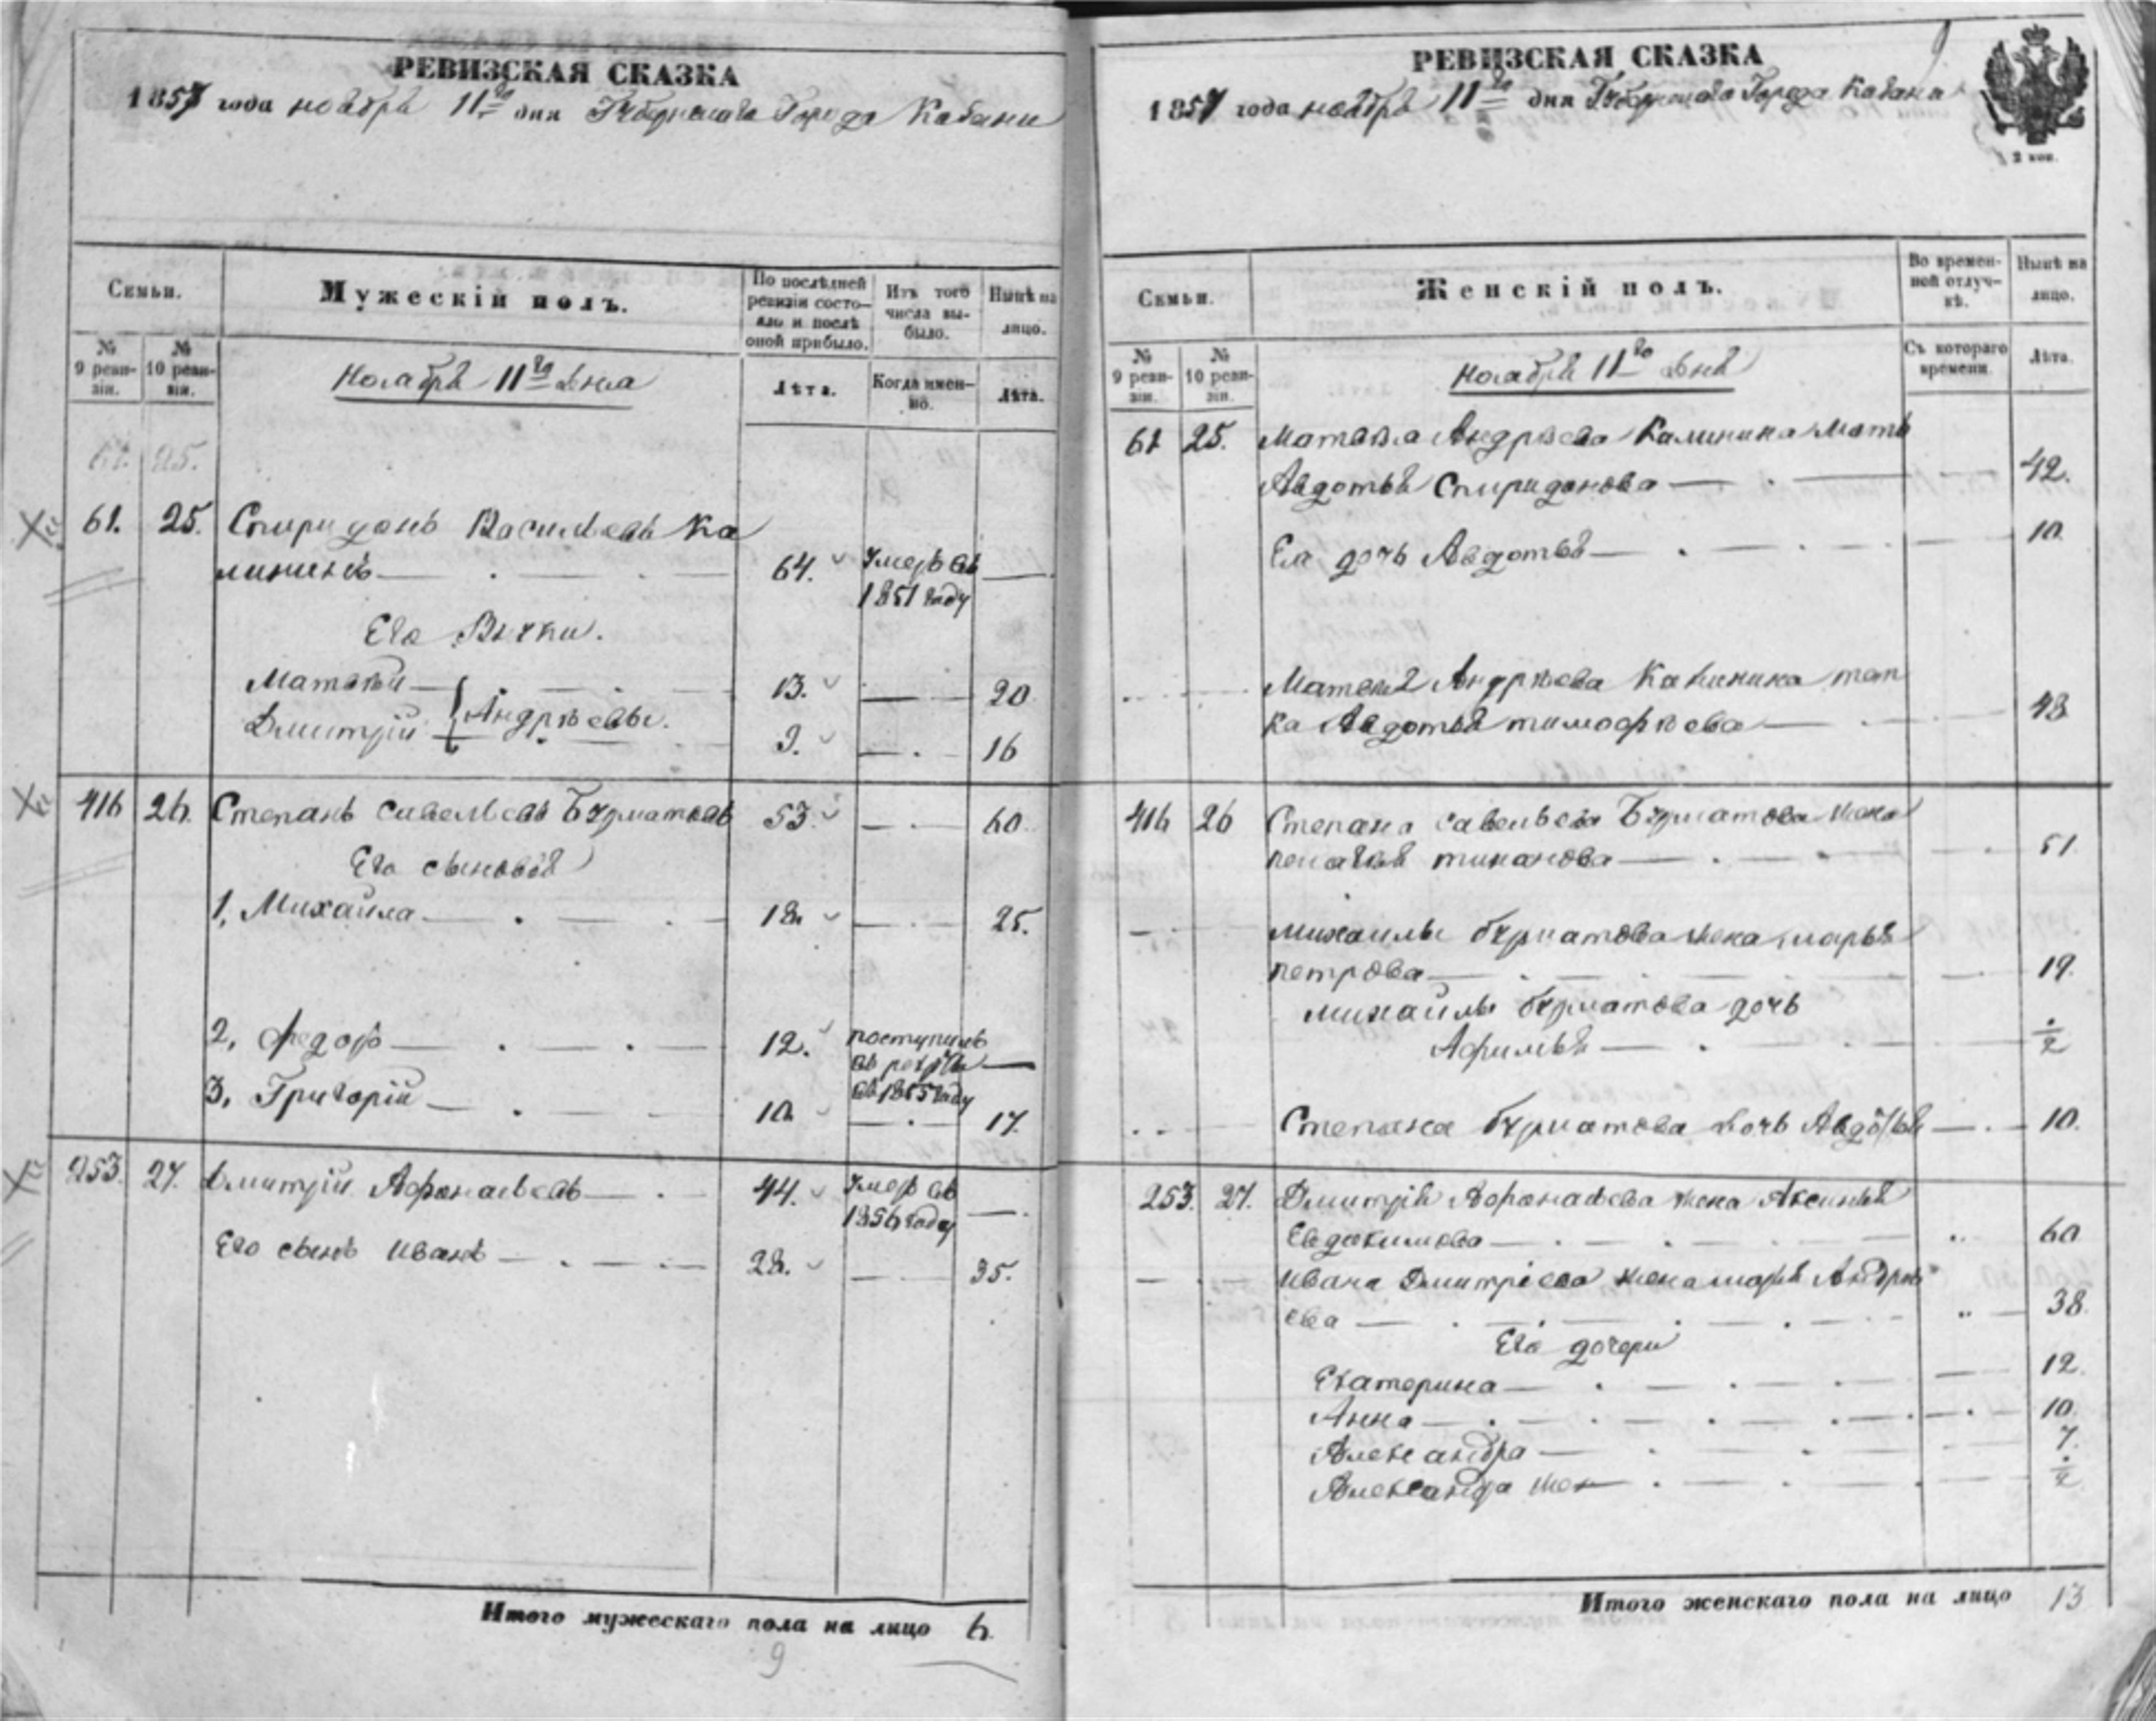 РЕВИЗСКАЯ СКАЗКА
1857 года ноября 11го дня Губернскаго Города Казани
Семьи.
Мужескій полъ.
По послѣдней ревизіи состояло и послѣ оной прибыло.
Изъ того числа выбыло.
Нынѣ на лицо.
№ 9 ревизіи.
№ 10 ревизіи.
Ноября 11го дня
Лѣта.
Когда именно.
Лѣта.
61. 25.
61. 25. Спиридонъ Васильевъ Ка
лининъ 64. Умеръ въ
1851 году
Его Внуки.
Матвѣй 13. 20
Дмитрій Андрѣевы. 9. 16
416 26. Степанъ Савельевъ Бурматовъ 53. 60.
Его сыновья
1, Михайла 18. 25.
2, Федоръ 12. поступилъ
въ рекруты
въ 1855 году
3, Григорій 10. 17.
253. 27. Дмитрій Афонасьевъ 44. Умеръ въ
1856 году
Его сынъ Иванъ 28. 35.
Итого мужескаго пола на лицо 6.
9
РЕВИЗСКАЯ СКАЗКА
1857 года ноября 11го дня Губернскаго Города Казани
2 коп.
Семьи.
Женскій полъ.
Во временной отлучкѣ.
Нынѣ на лицо.
№ 9 ревизіи.
№ 10 ревизіи.
Ноября 11го дня
Съ котораго времени.
Лѣта.
61 25. Матвѣя Андрѣева Калинина мать
Авдотья Спиридонова 42.
Ея дочь Авдотья 10.
Матвѣя Андрѣева Калинина тет
ка Авдотья тимофѣева 48
416 26 Степана савельева Бурматова жена
пелагея 51.
михаилы бурматова жена марья
петрова 19.
михаилы бурматова дочь
Афимья ½
Степана бурматова дочь Авдотья 10.
253. 27. Дмитрія Афонасьева жена Аксинья
Евдокимова 60
ивана Дмитріева жена марья Андрѣ
ева 38.
Его дочери
Екатерина 12.
Анна 10.
Александра 7.
Александра мен ½
Итого женскаго пола на лицо 13